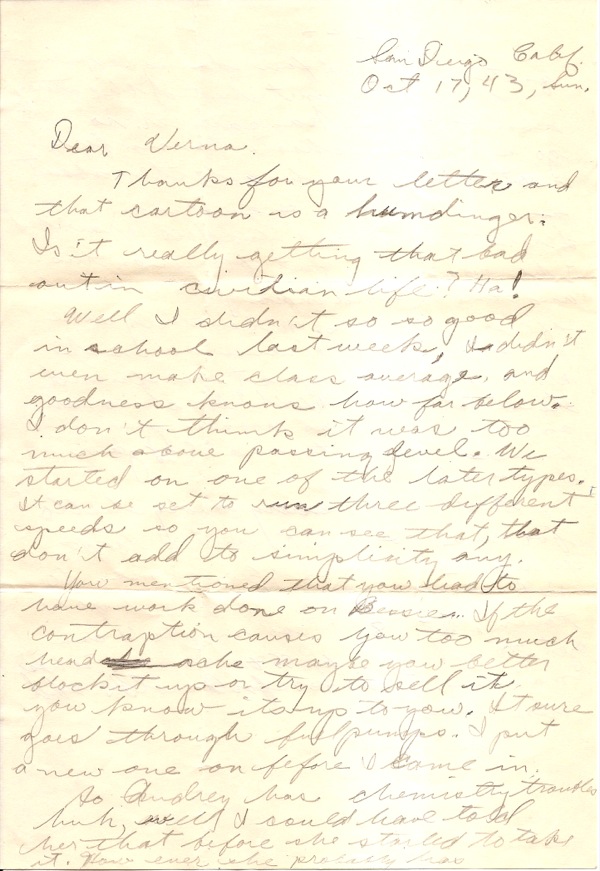 San Diego Calif.
Oct 17, 43, Sun.
Dear Verna.
Thanks for your letter and
that cartoon is a humdinger.
Is it really getting that bad
out in civilian life? Ha!
Well I didn't so so good
in school last week, I didn't
even make class average, and
goodness knows how far below.
I don't think it was too
much above passing level. We
started on one of the later types.
It can be set to run three different
speeds so you can see that, that
don't add to simplicity any.
You mentioned that you had to
have work done on Bessie. If the
contraption causes you too much
head ache maybe you better
block it up or try to sell it
you know its up to you. It sure
goes through fuelpumps. I put
a new one on before I came in.
So Audrey has chemistry troubles
huh, well I could have told
her that before she started to take
it. How ever she probably has